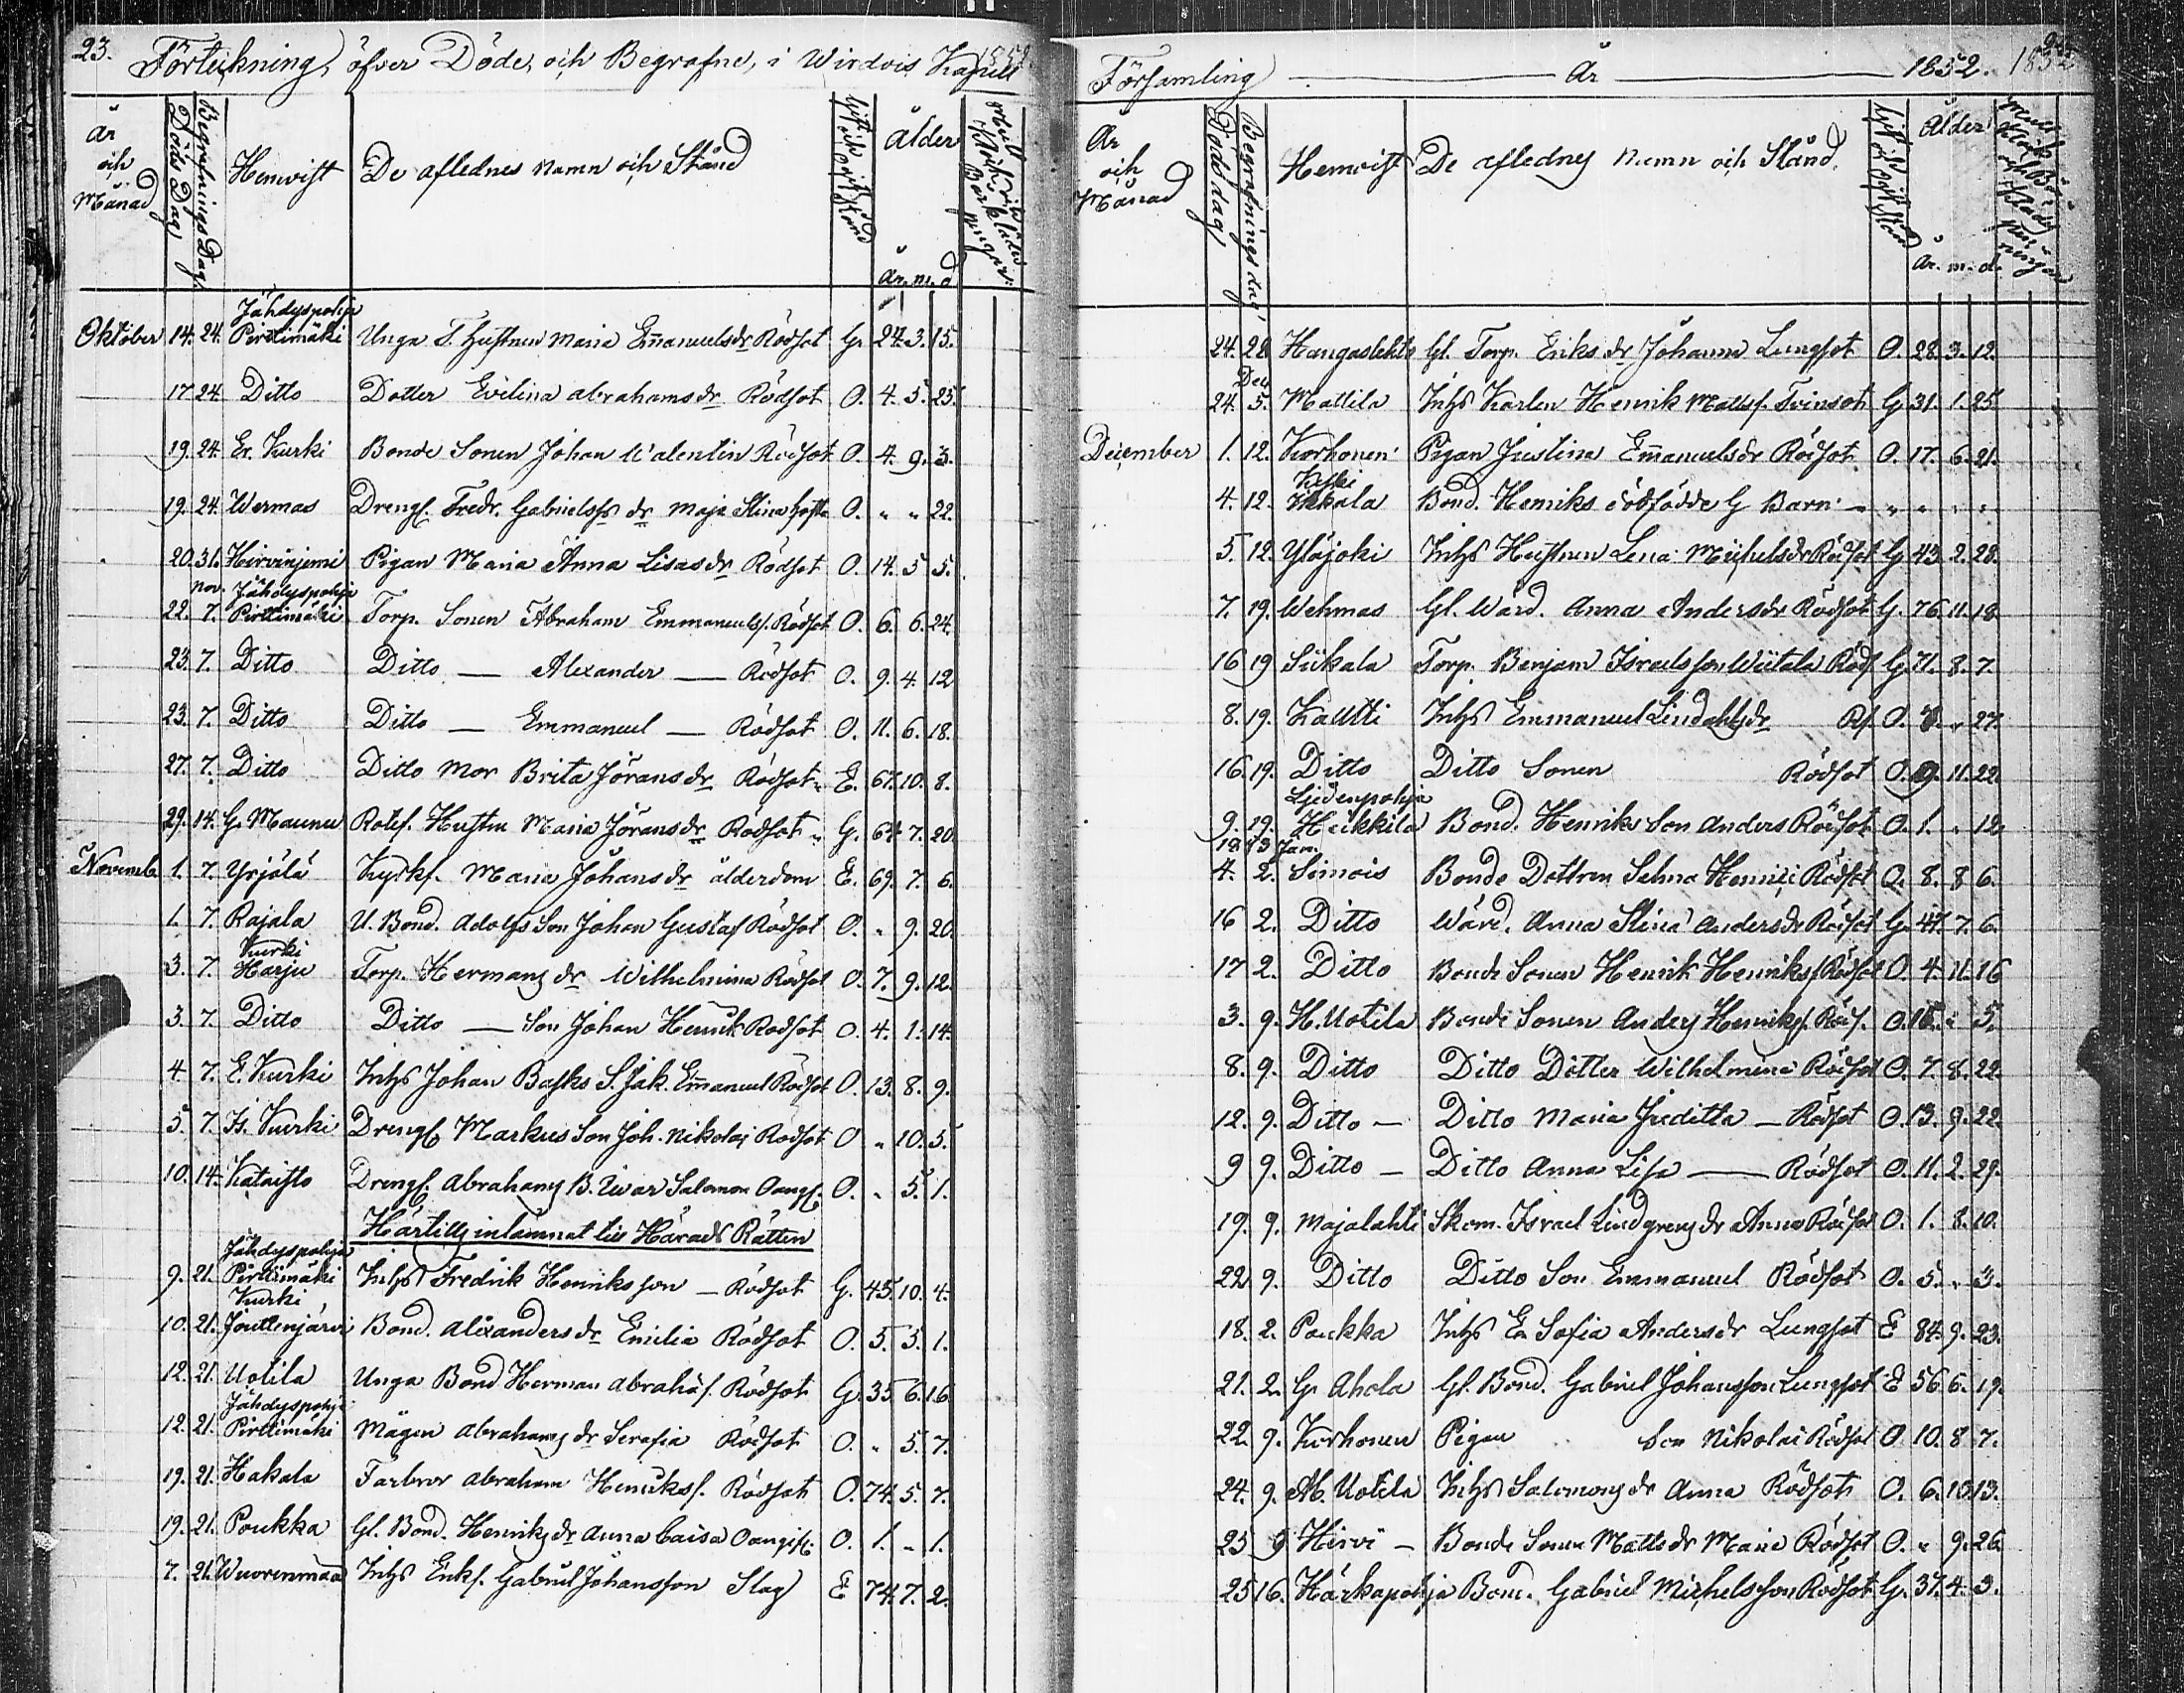 23. Förtekning, öfver Döde, och Begrafne, i Wirdois Kapell 1852
År och Månad | Döds Dag | Begrafnings Dag | Hemvist | De aflednes namn och Stånd | Ålder år. m. d
Jähdyspohja
Oktober 14. 24. Pirttimäki Unga T. Hustrun Maria Emanuelsdr Rödsot G. 27. 3. 15.
17 24. Ditto Dotter Evelina Abrahamsdr Rödsot O. 4. 5. 25.
19. 24. Er. Kurki Bonde Sonen Johan Walentin Rödsot O. 4. 9. 3.
19. 24. Wermas Drengf. Fredr. Gabrielss dr Maja Stina O. " " 22.
20. 31. Hirvinjemi Pigan Maria Anna Lisas dr Rödsot O. 14. 5 5.
nov. Jähdyspohja
22. 7. Pirttimäki Torp. Sonen Abraham Emmanuelss. Rödsot O. 6. 6. 24.
23. 7. Ditto Ditto — Alexander — Rödsot O. 9. 4. 12
23. 7. Ditto Ditto — Emmanuel — Rödsot O. 11. 6. 18.
27. 7. Ditto Ditto Mor Brita Jörans dr Rödsot E. 67. 10. 8.
29. 14. G. Maunu Rotef. Hustru Maria Jörans dr Rödsot G. 64 7. 20.
Novemb. 1. 7. Yrjölä Kyrkf. Maria Johans dr ålderdom E. 69. 7. 6.
1. 7. Rajala U. Bond. Adolfs Son Johan Gustaf Rödsot O. " 9. 20.
Kurki
3. 7. Harju Torp. Hermans dr Wilhelmina Rödsot O. 7. 9. 12.
3. 7. Ditto Ditto — Son Johan Henrik Rödsot O. 4. 1. 14.
4. 7. E. Kurki Inhs Johan Basks S. Jak. Emanuel Rödsot O. 13. 8. 9.
5. 7. Is. Kurki Drengf. Markus Son Joh. Nikolai Rödsot O " 10. 5.
10. 14. Kataisto Drengf. Abrahams B. Iwar Salomon Oangf. O. " 5. 1.
Härtill inlämnat till Härads Rätten
Jähdyspohja
9. 21. Pirttimäki Inhs Fredrik Henriksson — Rödsot G. 45. 10. 4.
Kurki
10. 21. Jouttenjärvi Bond. Alexanders dr Emilia Rödsot O. 5. 5. 1.
12. 21. Uotila Unga Bond Herman Abrahass. Rödsot G. 35 6. 16
Jähdyspohja
12. 21. Pirttimäki Mågen Abrahams dr Serafia Rödsot O. " 5. 7.
19. 21. Hakala Farbror Abraham Henrikss. Rödsot O. 74. 5. 7.
19. 21. Poukka Gl. Bond. Henriks dr Anna Caisa Oangif. O. 1. " 1.
7. 21. Wuorenmaa Inhs Enkf. Gabriel Johansson Slag E 74. 7. 2.
Församling — År — 1852. 1852
År och Månad | Döds dag | Begrafnings dag | Hemvist | De aflednes namn och Stånd. | Ålder År. m. d.
24. 28 Hangaslahti Gl. Torp. Eriks dr Johanna Lungsot O. 28. 3. 12.
Dec.
24. 5. Mattila Inhs Karlen Henrik Mattss. Tvinsot G. 31. 1. 25
December 1. 12. Korhonen Pigan Justina Emanuelsdr Rödsot O. 17. 6. 21.
Keski
4. 12. Ikkala Bond. Henriks dödfödde G Barn " " " "
5. 12. Yläjoki Inhs Hustrun Lena Michelsdr Rödsot G 43. 2. 28.
7. 19. Wehmas Gl. Wärd. Anna Andersdr Rödsot G. 76. 11. 18.
16 19 Siikala Torp. Benjam Israelsson Wiitala Röds. G. 71. 8. 7.
8. 19. Kautti Inhs Emmanuel Lindahls dr Rs. O. " 27.
16. 19. Ditto Ditto Sonen Rödsot O. 9. 11. 22
Liedenpohja
9. 19. Heikkilä Bond. Henriks Son Anders Rödsot O. 1. " 12.
1853 Jan.
4. 2. Simois Bonde Dottren Selma Henrici Rödsot O. 8. 8 6.
16 2. Ditto Wärd. Anna Stina Andersdr Rödsot G. 47. 7. 6.
17 2. Ditto Bonde Sonen Henrik Henrikss. Rödsot O. 4. 11. 16
3. 9. H. Uotila Bonde Sonen Anders Henrikss. Röds. O. 15. " 5.
8. 9. Ditto Ditto Dotter Wilhelmina Rödsot O. 7. 8. 22.
12. 9. Ditto — Ditto Maria Freditta — Rödsot O. 13. 9. 22.
9 9. Ditto — Ditto Anna Lisa — Rödsot O. 11. 2. 29.
19. 9. Majalahti Skom. Israel Lindgrens dr Anna Rödsot O. 1. 8. 10.
22 9. Ditto Ditto Son Emmanuel Rödsot O. 5. " 3.
18. 2. Poukka Inhs En Sofia Andersdr Lungsot E 84. 9. 23.
21. 2. Gr Ahola Gl. Bond. Gabriel Johansson Lungsot E 56. 6. 19.
22 9. Korhonen Pigan Son Nikolai Rödsot O. 10. 8 7.
24. 9. M. Uotila Inhs Salomons dr Anna Rödsot O. 6. 10. 13.
25 9 Hirvi — Bonde Sonen Matts dr Maria Rödsot O. " 9. 26
25 16. Härkapohja Bond. Gabriel Michelsson Rödsot G. 37. 4. 3.